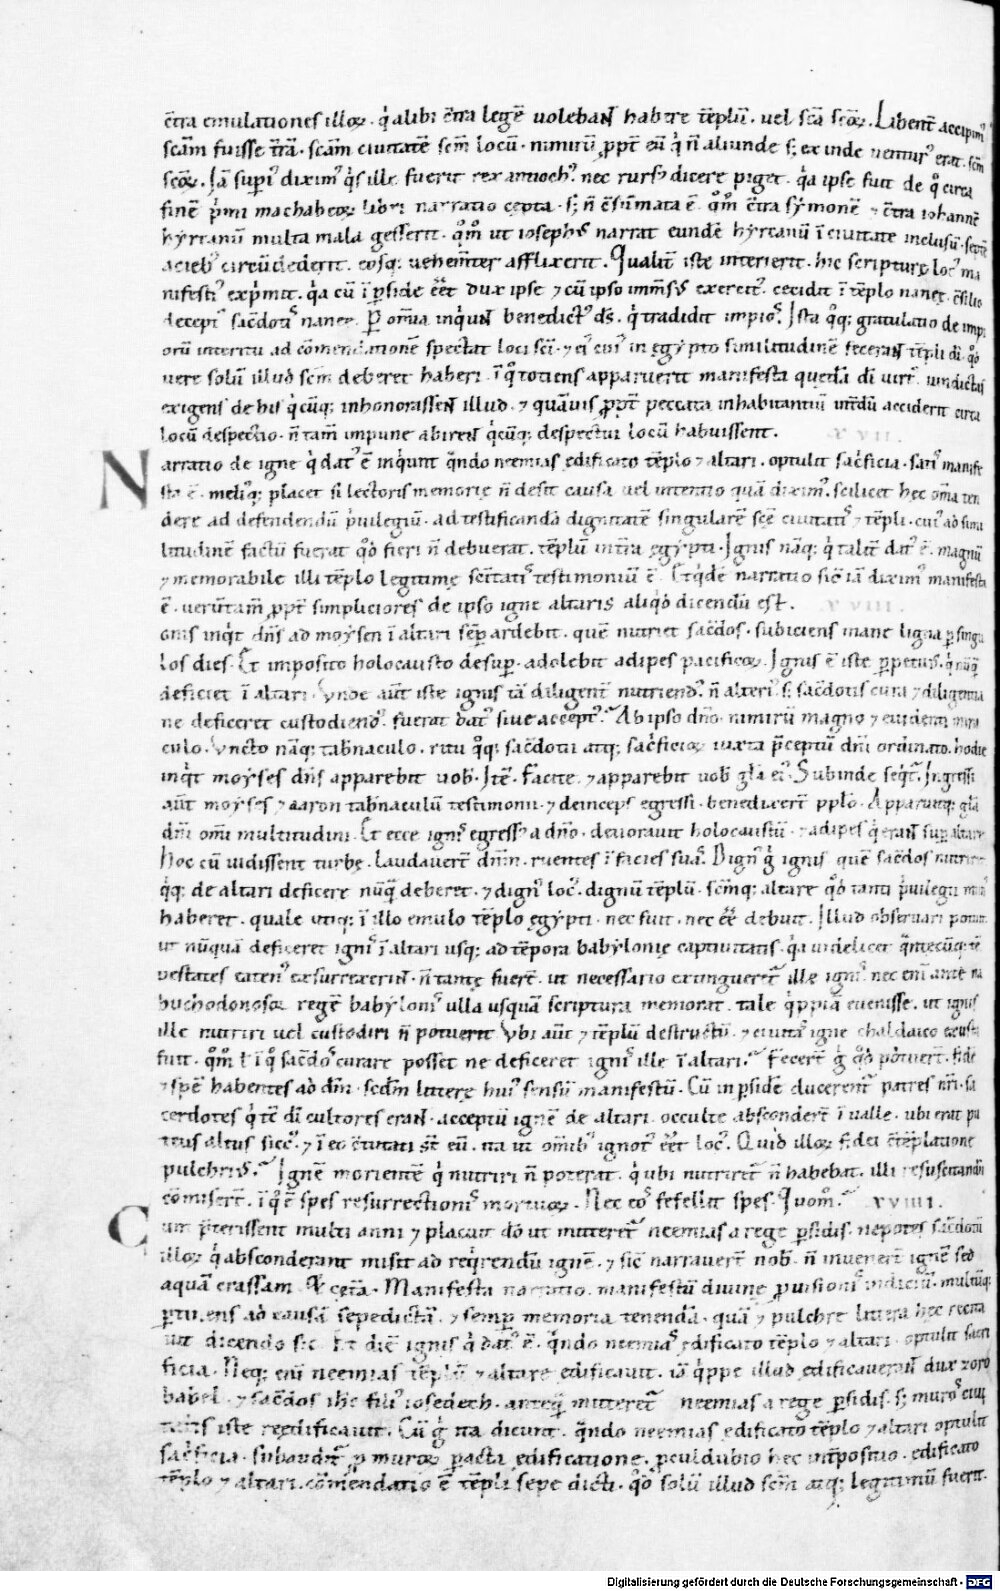 c̄tra emulationes illoꝝ · q̇ alibi c̄tra legē uolebant habere tēplū · uel sc̄a sc̄oꝝ · Libent̄ accipimꝰ
sc̄am fuisse t̄rā · sc̄am ciuitatē sc̄m locū · nimirū ꝓpt̄ eū q̇ n̄ aliunde sꝫ ex inde uenturꝰ erat · sc̄m
sc̄oꝝ · Iā supͥ diximꝰ q̇s ille fuerit rex antiochꝰ · nec rursꝰ dicere piget · q̇a ipse fuit de q̊ circa
finē p̍mi machabeoꝝ libri narratio cepta · sꝫ n̄ c̄sūmata ē · q̊m c̄tra symonē ⁊ c̄tra iohannē
hyrcanū multa mala gesserit · q̊m ut iosephꝰ narrat eundē hyrcanū ī ciuitate inclusū · septē
aciebꝰ circūdederit · eosqꝫ uehemt̄er afflixerit · Qualit̄ iste interierit · hic scripturę locꝰ ma
nifestiꝰ exp̍mit · q̇a cū ī ꝑside eēt dux ipse ⁊ cū ipso imm̄sꝰ exercitꝰ · cecidit ī tēplo naneę · c̄silio
deceptꝰ sac̄dotū naneę · P̄ om̄ia inquiunt benedictꝰ ds̄ · q̇ tradidit impiOs · Ista q̊qꝫ gratulatio de impi
orū interitu ad cōmendationē spectat loci sc̄i · ⁊ eiꝰ cuiꝰ in egypto similitudinē fecerant tēpli dī · q̊d
uere solū illud sc̄m deberet haberi · ī q̊ totiens apparuerit manifesta quędā dī uirtꝰ uindictas
exigens de his q̇cūqꝫ inhonorassent illud · ⁊ quāuis ꝓpt̄ peccata inhabitantiū int̄dū acciderit circa
locū despectio · n̄ tam̄ impune abirent q̇cūqꝫ despectui locū habuissent · XVII ·
Narratio de igne q̇ datꝰ ē inquiunt qn̄do neemias ędificato tēplo ⁊ altari · optulit sac̍ficia · satis manife
sta ē · meliꝰqꝫ placet si lectoris memorię n̄ desit causa uel intentio quā diximꝰ · scilicet hęc om̄ia ten
dere ad defendendū p̍uilegiū · ad testificandā dignitatē singularē sc̄ę ciuitatis ⁊ tēpli · cuiꝰ ad simi
litudinē factū fuerat q̊d fieri n̄ debuerat · tēplū int̄ra ęgypti · Ignis nāqꝫ q̇ talit̄ datꝰ ē · magnū
⁊ memorabile illi tēplo legitimę sc̄itatis testimoniū ē · Et q̇dē narratio sic̄ iā diximꝰ manifesta
ē · uerūtam̄ ꝓpt̄ simpliciores de ipso igne altaris aliq̊d dicendū est · XVIII ·
Ignis inq̇t dn̄s ad moysen ī altari semꝑ ardebit · quē nutriet sac̄dos · subiciens mane ligna ꝑ singu
los dies · Et imposito holocausto desuꝑ · adolebit adipes pacificoꝝ · Ignis ē iste ꝑpetuꝰ · q̇ nūq̄
deficiet ī altari · Vnde aūt iste ignis tā diligent̄ nutriendꝰ · n̄ alteriꝰ sꝫ sac̄dotis cura ⁊ diligentia
ne deficeret custodiendꝰ · fuerat datꝰ siue acceptꝰ? Ab ipso dn̄o · nimirū magno ⁊ euidenti mira
culo · Vncto nāqꝫ tab̄naculo · ritu q̊qꝫ sac̄dotii atqꝫ sac̍ficioꝝ iuxta p̄ceptū dn̄i ordinato · hodie
inq̇t moyses dn̄s apparebit uob̄ · Itē · Facite · ⁊ apparebit uob̄ gl̄a eiꝰ · Subinde seq̇t̄ · Ingressi
aūt moyses ⁊ aaron tab̄naculū testimonii · ⁊ deinceps egressi · benedixer̄t pplō · Apparuitqꝫ gl̄a
dn̄i om̄i multitudini · Et ecce ignis egressꝰ a dn̄o · deuorauit holocaustū · ⁊ adipes q̇ erant suꝑ altare
Hoc cū uidissent turbę · laudauer̄t dn̄m · ruentes ī facies suas · Dignꝰ g̍ ignis quē sac̄dos nutriret
q̇qꝫ de altari deficere nūq̄ deberet · ⁊ dignꝰ locꝰ · dignū tēplū · sc̄mqꝫ altare q̊d tanti p̍uilegii
haberet · quale utiqꝫ ī illo emulo tēplo ęgypti · nec fuit · nec eē debuit · Illud obseruari potuit
ut nūquā deficeret ignis ī altari usqꝫ ad tēpora babylonię captiuitatis · q̇a uidelicet q̄ntęcūqꝫ tē
pestates catenꝰ exsurrexerint · n̄ tantę fuer̄t · ut necessario extinguerēt̄ ille ignis nec eni̅ ante na
buchodonosor regē babylonis ulla usquā scriptura memorat · tale q̍ppiā euenisse · ut ignis
ille nutriri uel custodiri n̄ potuerit Vbi aūt ⁊ tēplū destructū · ⁊ ciuitas igne chaldaico exusta
fuit · q̊m t̄ ī q̊ sac̄dos curare posset ne deficeret ignis ille ī altari? Fecer̄t g̍ q̊d potuer̄t · fidē
⁊ spē habentes ad dm̄ · sc̄dm litterę huiꝰ sensū manifestū · Cū in ꝑsidē ducerent̄ patres nr̄i · sa
cerdotes q̇ tc̄ dī cultores erant · acceptū ignē de altari · occulte absconder̄t ī ualle · ubi erat pu
teus altus siccꝰ · ⁊ ī eo c̄tutati st̄ eū · ita ut om̄ibꝰ ignotꝰ eēt locꝰ · Quid illoꝝ fidei c̄tēplatione
pulchriꝰ? Ignē morientē q̇ nutriri n̄ poterat · q̇ ubi nutriret̄ n̄ habebat · illi resuscitandū
cōmiser̄t · ī q̊ ē spes resurrectionis mortuoꝝ · Nec eos fefellit spes · Quom̊? XVIIII ·
Cum p̄terissent multi anni ⁊ placuit dō ut mitteret̄ neemias a rege ꝑsidis · nepotes sac̄dotū
illoꝝ q̇ absconderant misit ad req̇rendū ignē · ⁊ sic̄ narrauer̄t nob̄ · n̄ inuener̄t ignē sed
aquā crassam & cet̄a · Manifesta narratio · manifestū diuinę ꝓuisionis indiciū · multūqꝫ
ꝑtinens ad causā sepedictā · ⁊ semꝑ memoria tenendā · quā ⁊ pulchre littera hęc recita
uit dicendo sic · Et diē ignis q̇ datꝰ ē · qn̄do neemias ędificato tēplo ⁊ altari · optulit sacri
ficia · Neqꝫ eni̅ neemias tēplū ⁊ altare edificauit · iā q̍ppe illud ędificauerant dux zoro
babel · ⁊ sac̄dos ihc̄ filiꝰ iosedech · anteq̄ mitteret̄ neemias a rege ꝑsidis · sꝫ muros ciui
tatis iste reędificauit · Cū g̍ ita dicunt · qn̄do neemias ędificato tēplo ⁊ altari optulit
sac̍ficia · subaudit̄ ꝓ muroꝝ ꝑacta ędificatione · ꝓculdubio hęc int̄positio · ędificato
tēplo ⁊ altari · cōmendatio ē tēpli sepe dicti · q̊d solū illud sc̄m atqꝫ legitimū fuerit ·
Digitalisierung gefördert durch die Deutsche Forschungsgemeinschaft - DFG